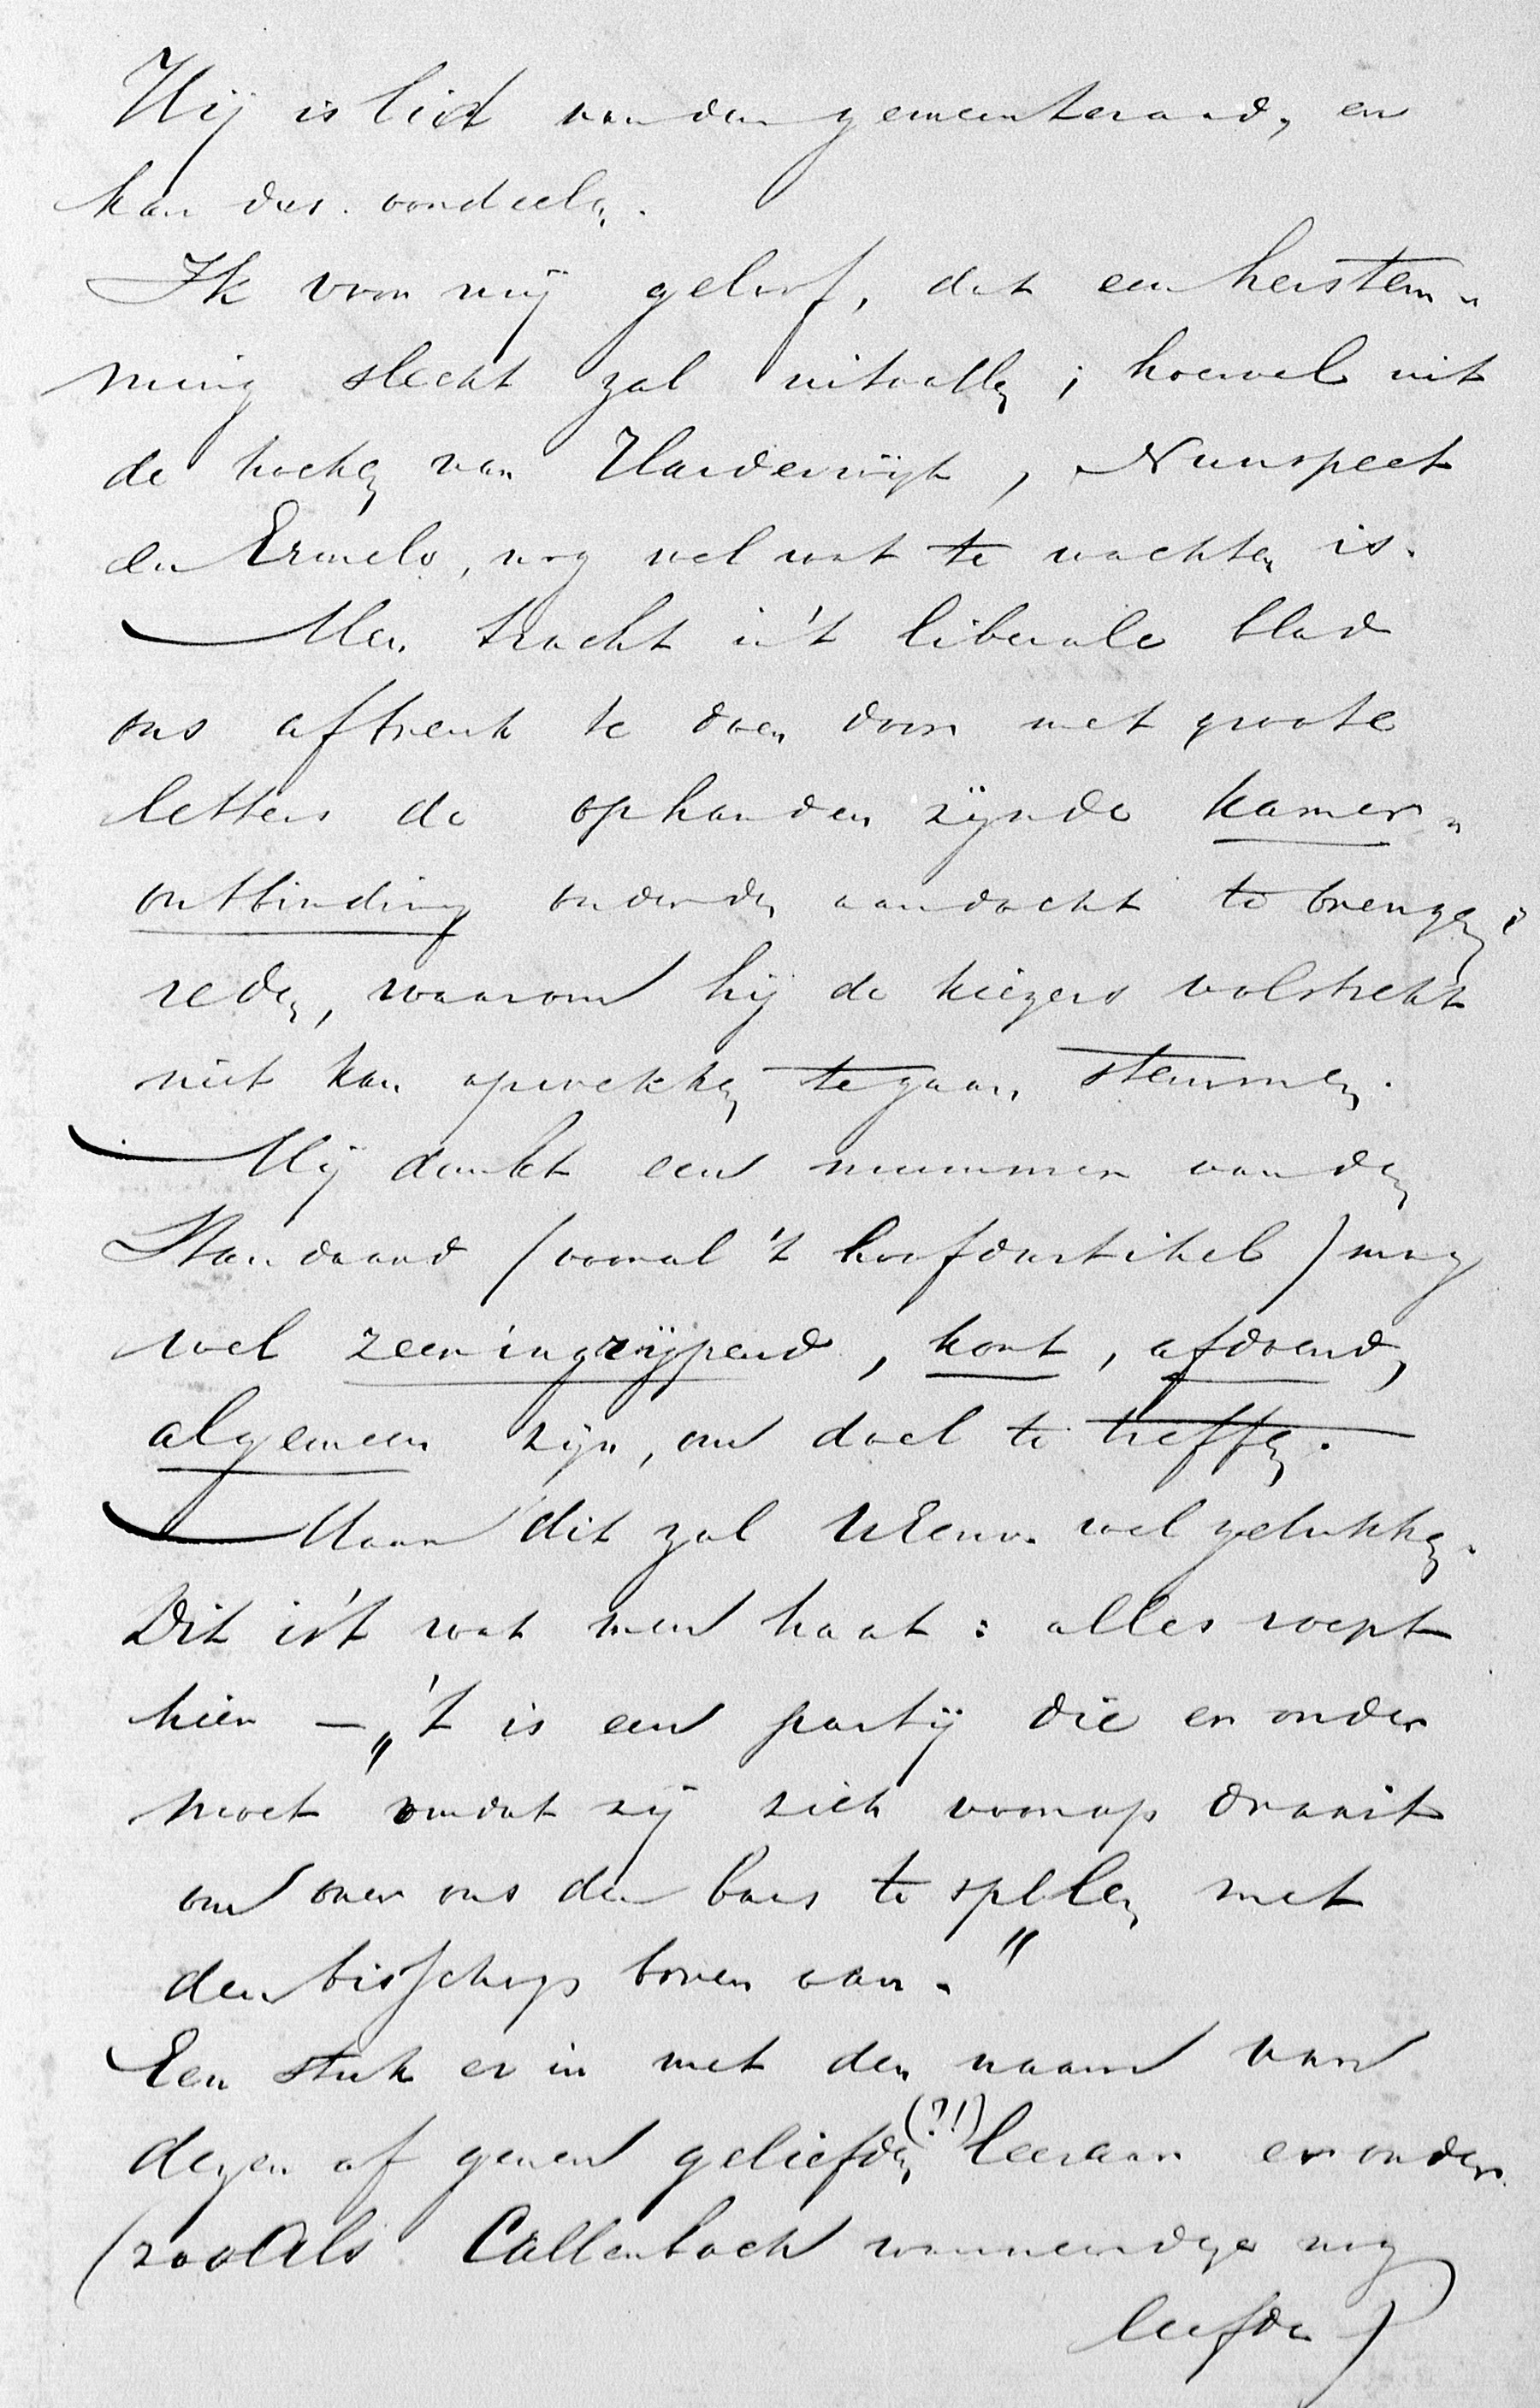 Hij is lid van den gemeenteraad, en
kan dus oordeelen.
Ik voor mij geloof, dat een herstem„
ming slecht zal uitvallen; hoewel uit
de hoeken van Harderwijk, Nunspeet
en Ermelo, nog wel wat te wachten is.
Men tracht in 't liberale blad
ons afbreuk te doen door met groote
letters de ophanden zijnde kamer„
ontbinding onder de aandacht te brengen;
reden, waarom hij de kiezers volstrekt
niet kan opwekken te gaan stemmen.
Mij dunkt een nummer van den
Standaard (vooral 't hoofdartikel) mag
wel zeer ingrijpend, kort, afdoend,
algemeen zijn, om doel te treffen.
Maar dit zal UEerw. wel gelukken.
Dit is 't wat men haat: alles roept
hier — „'t is een partij die er onder
moet omdat zij zich voorop draait
om over ons den baas te spelen met
den bisschop boven aan."
Een stuk er in met den naam van
dezen of genen geliefden (?!) leeraar er onder.
(zooals Callenbach wanneer deze nog
leefde)